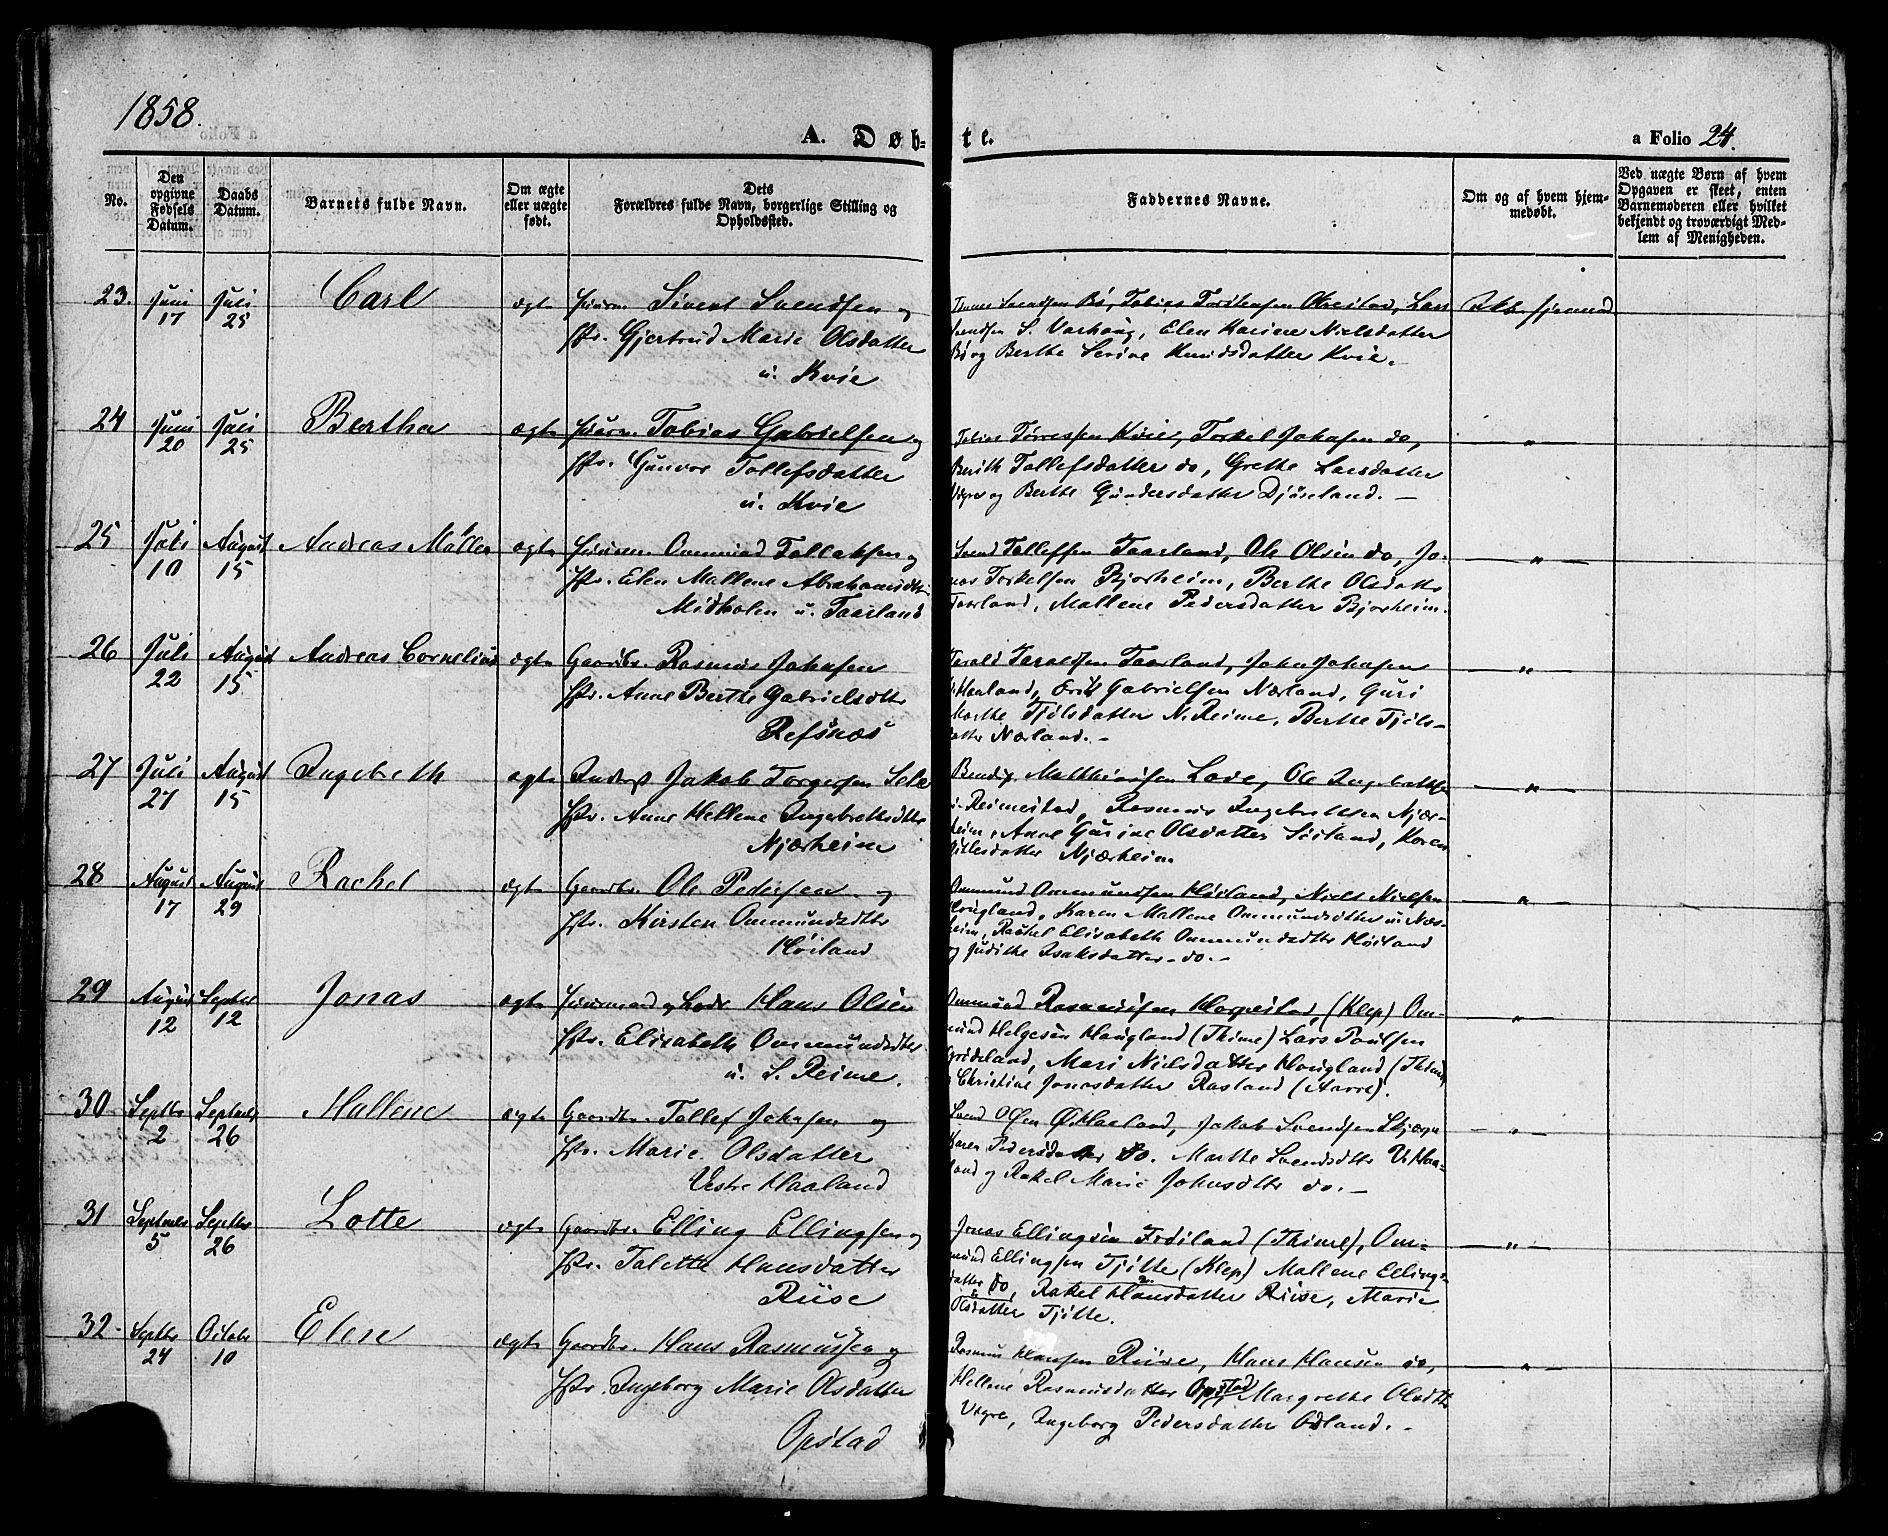 1858.
A. Døb-
te.
a Folio 24.
No.
Den opgivne Fødsels Datum.
Daabs Datum.
Barnets fulde Navn.
Om ægte eller uægte født.
Dets Forældres fulde Navn, borgerlige Stilling og Opholdssted.
Faddernes Navne.
Om og af hvem hjemmedøbt.
Ved uægte Børn af hvem Opgaven er skeet, enten Barnemoderen eller hvilket bekjendt og troværdigt Medlem af Menigheden.
23. Juni 17 Juli 25 Carl ægte Sivert Svendsen og
Hstr. Gjertrud Marie Olsdatter
u. Kvie
Svendsen Bø, Tobias Lars
Svendsen S. Varhoug, Elen Karine Nielsdatter
Bø og Berthe Serine Knudsdatter Kvie.
Ikke hjemmed
24 Juni 20 Juli 25 Bertha ægte Huusm. Tobias Gabrielsen og
Hstr. Gunvor Tollefsdatter
u. Kvie
Tobias Tørressen Kvie, Torkel Johnsen do,
Berith Tollefsdatter do, Grethe Larsdatter
og Berthe Gundersdatter Djúseland. -
"
25 Juli 10 August 15 Andreas Malle ægte Ommund Tollaksen og
Hstr. Elen Mallene Abrahamsdtr
Midholen u. Taarland
Svend Tollefsen Taarland, Ole Olsen do, Jo-
nas Torkelsen Bjorheim, Berthe Olsdatter
Taarland, Mallene Pedersdatter Bjorheim.
"
26 Juli 22 August 15 Andreas Cornelius ægte Gaardbr. Rasmus Johnsen
Hstr. Anne Berthe Gabrielsdtr
Refsnæs
Tarald Taraldsen Taarland, John Johnsen
Haaland, Erik Gabrielsen Nærland, Guri
Marthe Tjølsdatter N. Reime, Berthe Tjøls-
datter Nærland. -
"
27 Juli 27 August 15 Ingebreth ægte Inderst Jakob Torgersen Sele
Hstr. Anne Hellene Ingebretsdtr
Njærheim
Bendix Mathiassen Lode, Ole Ingebretsen
Reimestad, Rasmus Ingebretsen Njær-
heim, Anne Gurine Olsdatter Søiland, Karen
Njærheim
"
28 August 17 August 29 Rachel ægte Gaardbr. Ole Pedersen og
Hstr. Kirsten Ommundsdtr
Høiland
Ommund Ommundsen Høiland, Niels Nielsen
Hougland, Karen Mallene Ommundsdtter u. Nær-
heim, Rachel Elisabeth Ommundsdtr Høiland
og Judithe Isaksdatter do. -
"
29 August 12 Septbr 12 Jonas ægte Huusmand og Hans Olsen
Hstr. Elisabeth Ommundsdtr
u. S. Reime.
Ommund Rasmussen Horpestad, (Klep) Om-
mund Helgesen Haugland (Thime) Lars Poulsen
Grødeland, Mari Nielsdatter Hougland (Thime)
Christine Jonasdatter Rasland (Aarre).
"
30 Septbr 2 Septmbr 26 Mallene ægte Gaardbr. Tollef Johnsen og
Hstr. Marie Olsdatter
Vestre Haaland
Svend Olsen Ø. Haaland, Jakob Svendsen
Karen Pedersdatter do. Marthe Svendsdtter V. Haa-
land og Rakel Marie Johnsdtter do. -
"
31 Septmbr 5 Septbr 26 Lotte ægte Gaardbr. Elling Ellingsen og
Hstr. Talette Hansdatter
Riise
Jonas Ellingsen Frøiland (Thime), Om-
mund Ellingsen Tjøtte (Klep) Mallene Ellings-
datter do, Rakel Hansdatter Riise, Marie
Olsdatter Tjøtte.
"
32 Septbr 24 Octobr 10 Elen ægte Gaardbr. Hans Rasmussen og
Hstr. Ingeborg Marie Olsdatter
Opstad
Rasmus Hansen Riise, Hans Hansen do,
Hellene Rasmusdatter Opstad, Margrethe Olsdtr
Ingeborg Pedersdatter Ødland. -
"